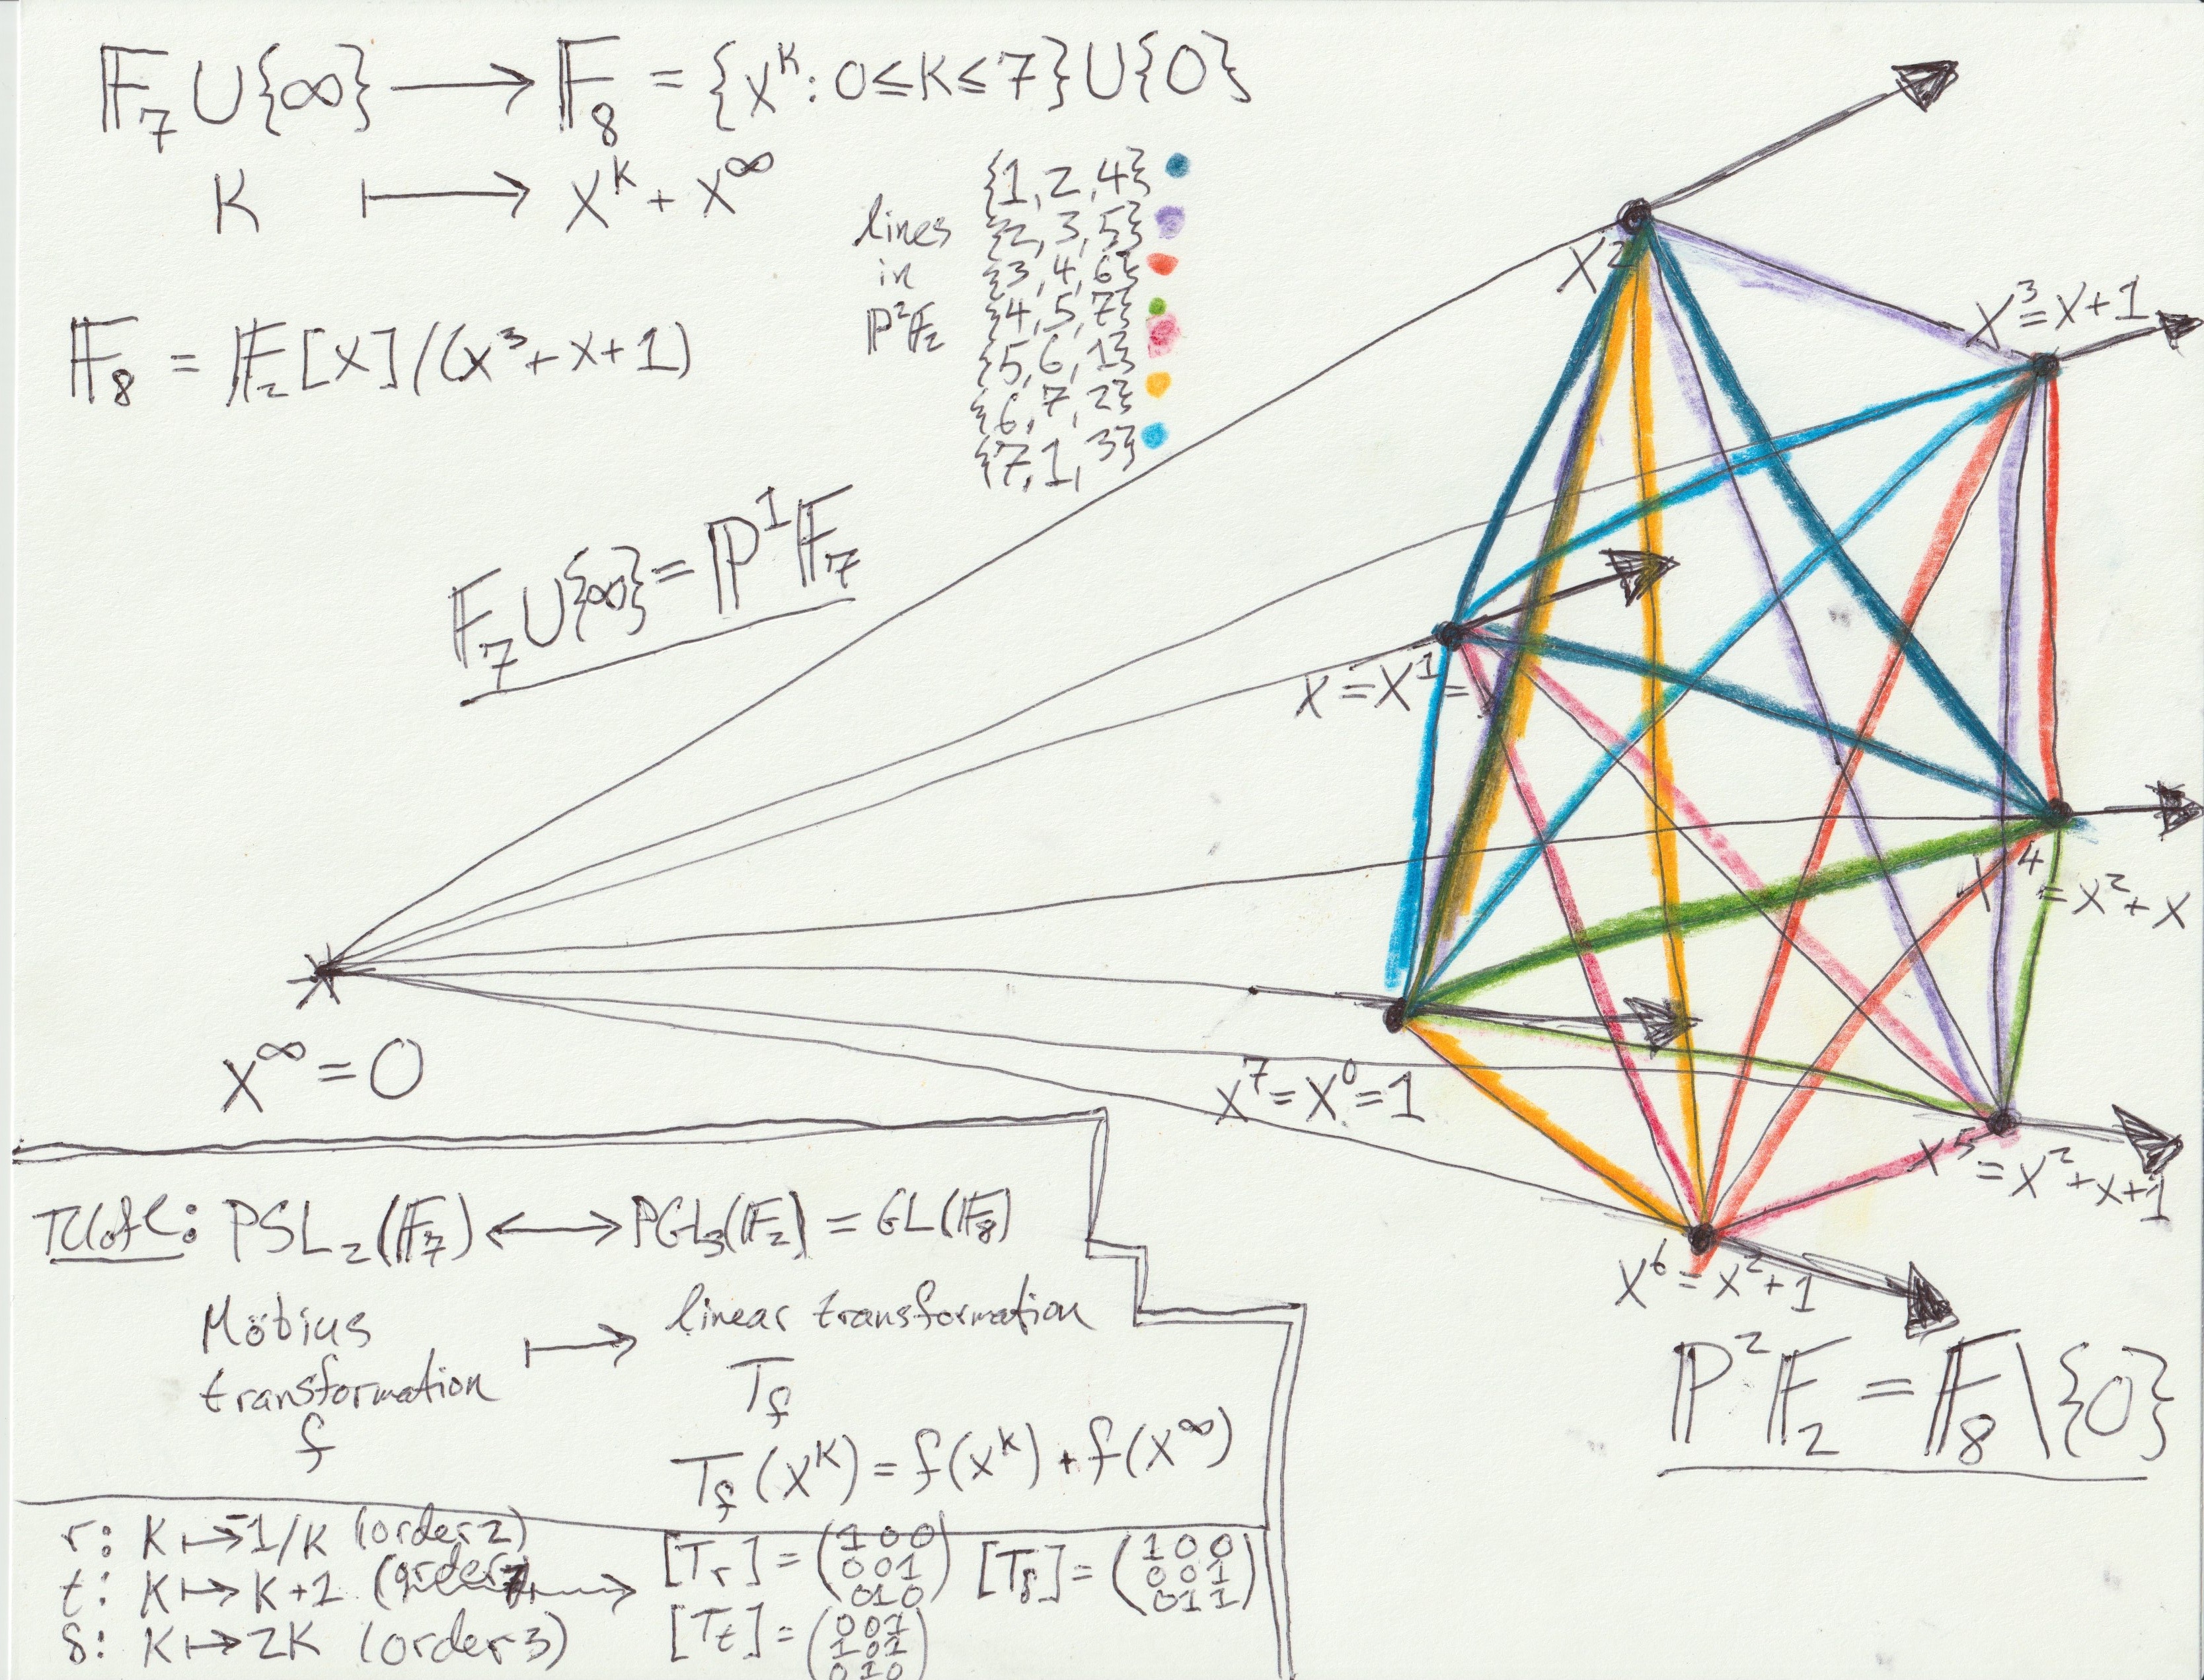 𝔽₇ ∪ {∞} ⟶ 𝔽₈ = {x^k : 0 ≤ k ≤ 7} ∪ {0}
K ⟼ x^k + x^∞
𝔽₈ = 𝔽₂[x]/(x³+x+1)
lines
in
ℙ²𝔽₂
{1, 2, 4}
{2, 3, 5}
{3, 4, 6}
{4, 5, 7}
{5, 6, 1}
{6, 7, 2}
{7, 1, 3}
𝔽₇ ∪ {∞} = ℙ¹𝔽₇
x²
x³ = x+1
x = x¹ =
x⁴ = x² + x
x⁷ = x⁰ = 1
x⁵ = x² + x + 1
x⁶ = x² + 1
x^∞ = 0
ℙ²𝔽₂ = 𝔽₈ \ {0}
PSL₂(𝔽₇) ⟷ PGL₃(𝔽₂) = GL(𝔽₈)
Möbius
transformation
f
⟼
linear transformation
T_f
T_f(x^k) = f(x^k) + f(x^∞)
r: K ↦ -1/K (order 2)
t: K ↦ K+1 (order 7) ⟶
δ: K ↦ 2K (order 3)
[T_r] = (1 0 0
0 0 1
0 1 0)
[T_δ] = (1 0 0
0 0 1
0 1 1)
[T_t] = (0 0 1
1 0 1
0 1 0)